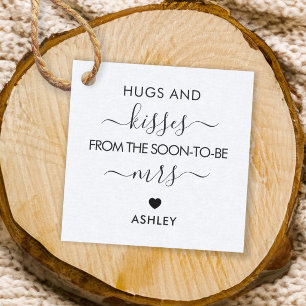 HUGS AND
kisses
FROM THE SOON-TO-BE
mrs
ASHLEY